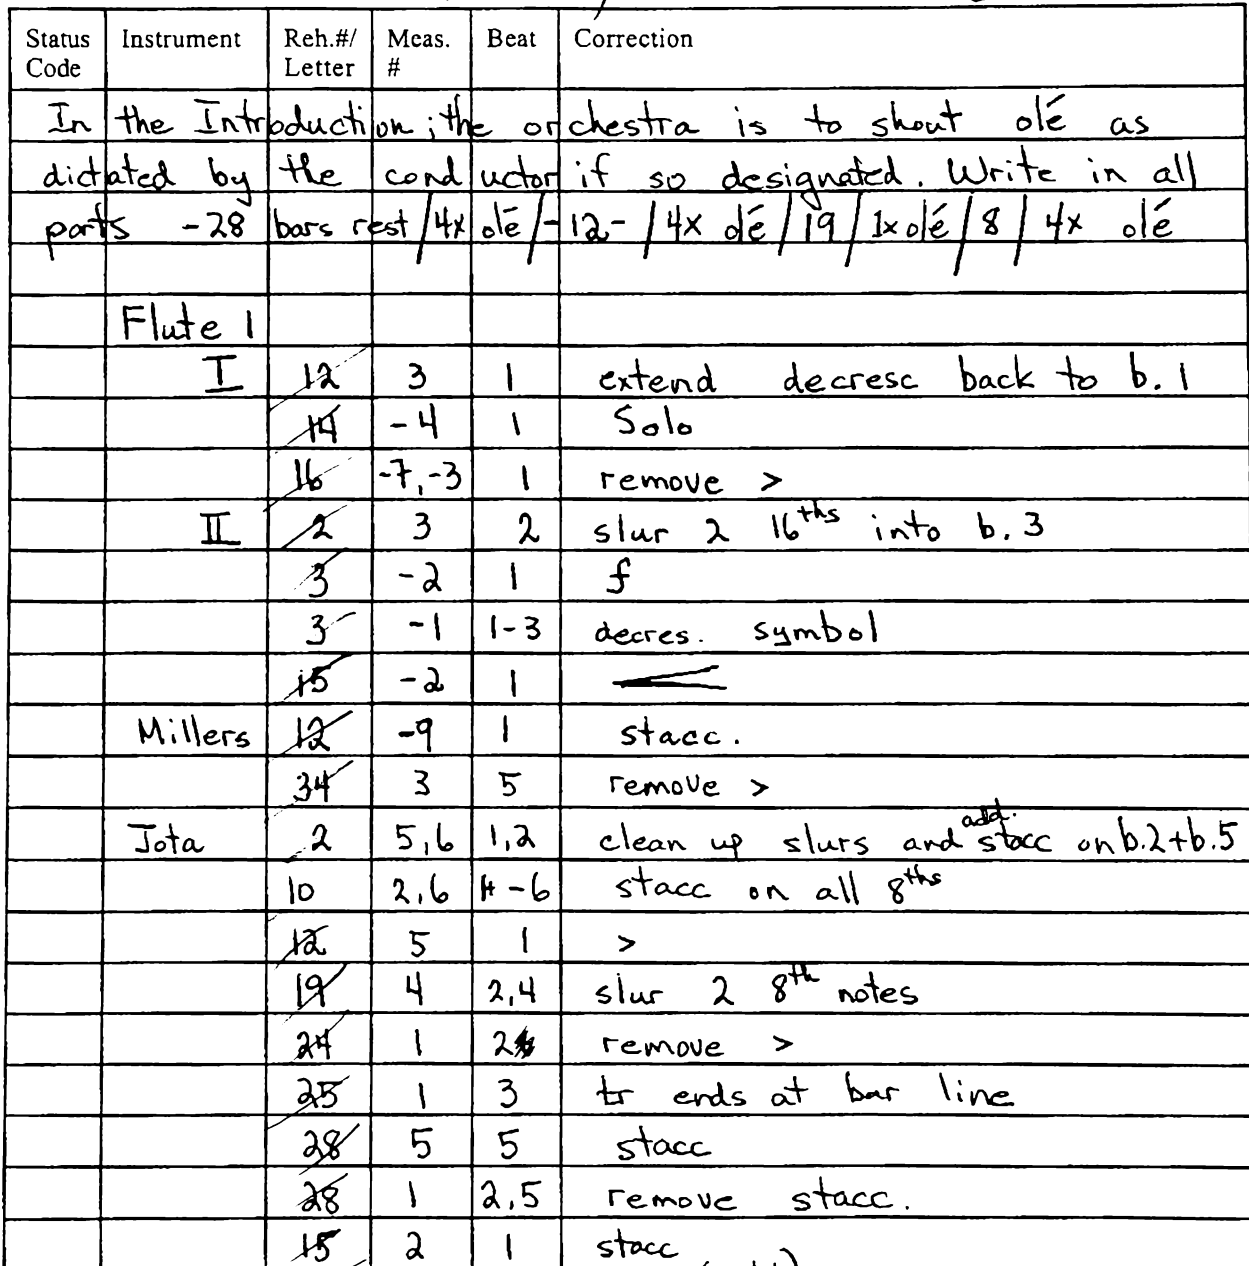 Status Code Instrument Reh.#/ Letter Meas. # Beat Correction
In the Introduction; the orchestra is to shout olé as
dictated by the conductor if so designated. Write in all
parts -28 bars rest / 4x olé / -12- / 4x olé / 19 / 1x olé / 8 / 4x olé
Flute 1
I 12 3 1 extend decresc back to b. 1
14 -4 1 Solo
16 -7, -3 1 remove >
II 2 3 2 slur 2 16ths into b. 3
3 -2 1 f
3 -1 1-3 decres. symbol
15 -2 1 <
Millers 12 -9 1 stacc.
34 3 5 remove >
Jota 2 5,6 1,2 clean up slurs and add. stacc on b.2+b.5
10 2,6 4-6 stacc on all 8ths
12 5 1 >
19 4 2,4 slur 2 8th notes
24 1 2 remove >
25 1 3 tr ends at bar line
28 5 5 stacc
28 1 2,5 remove stacc.
15 2 1 stacc